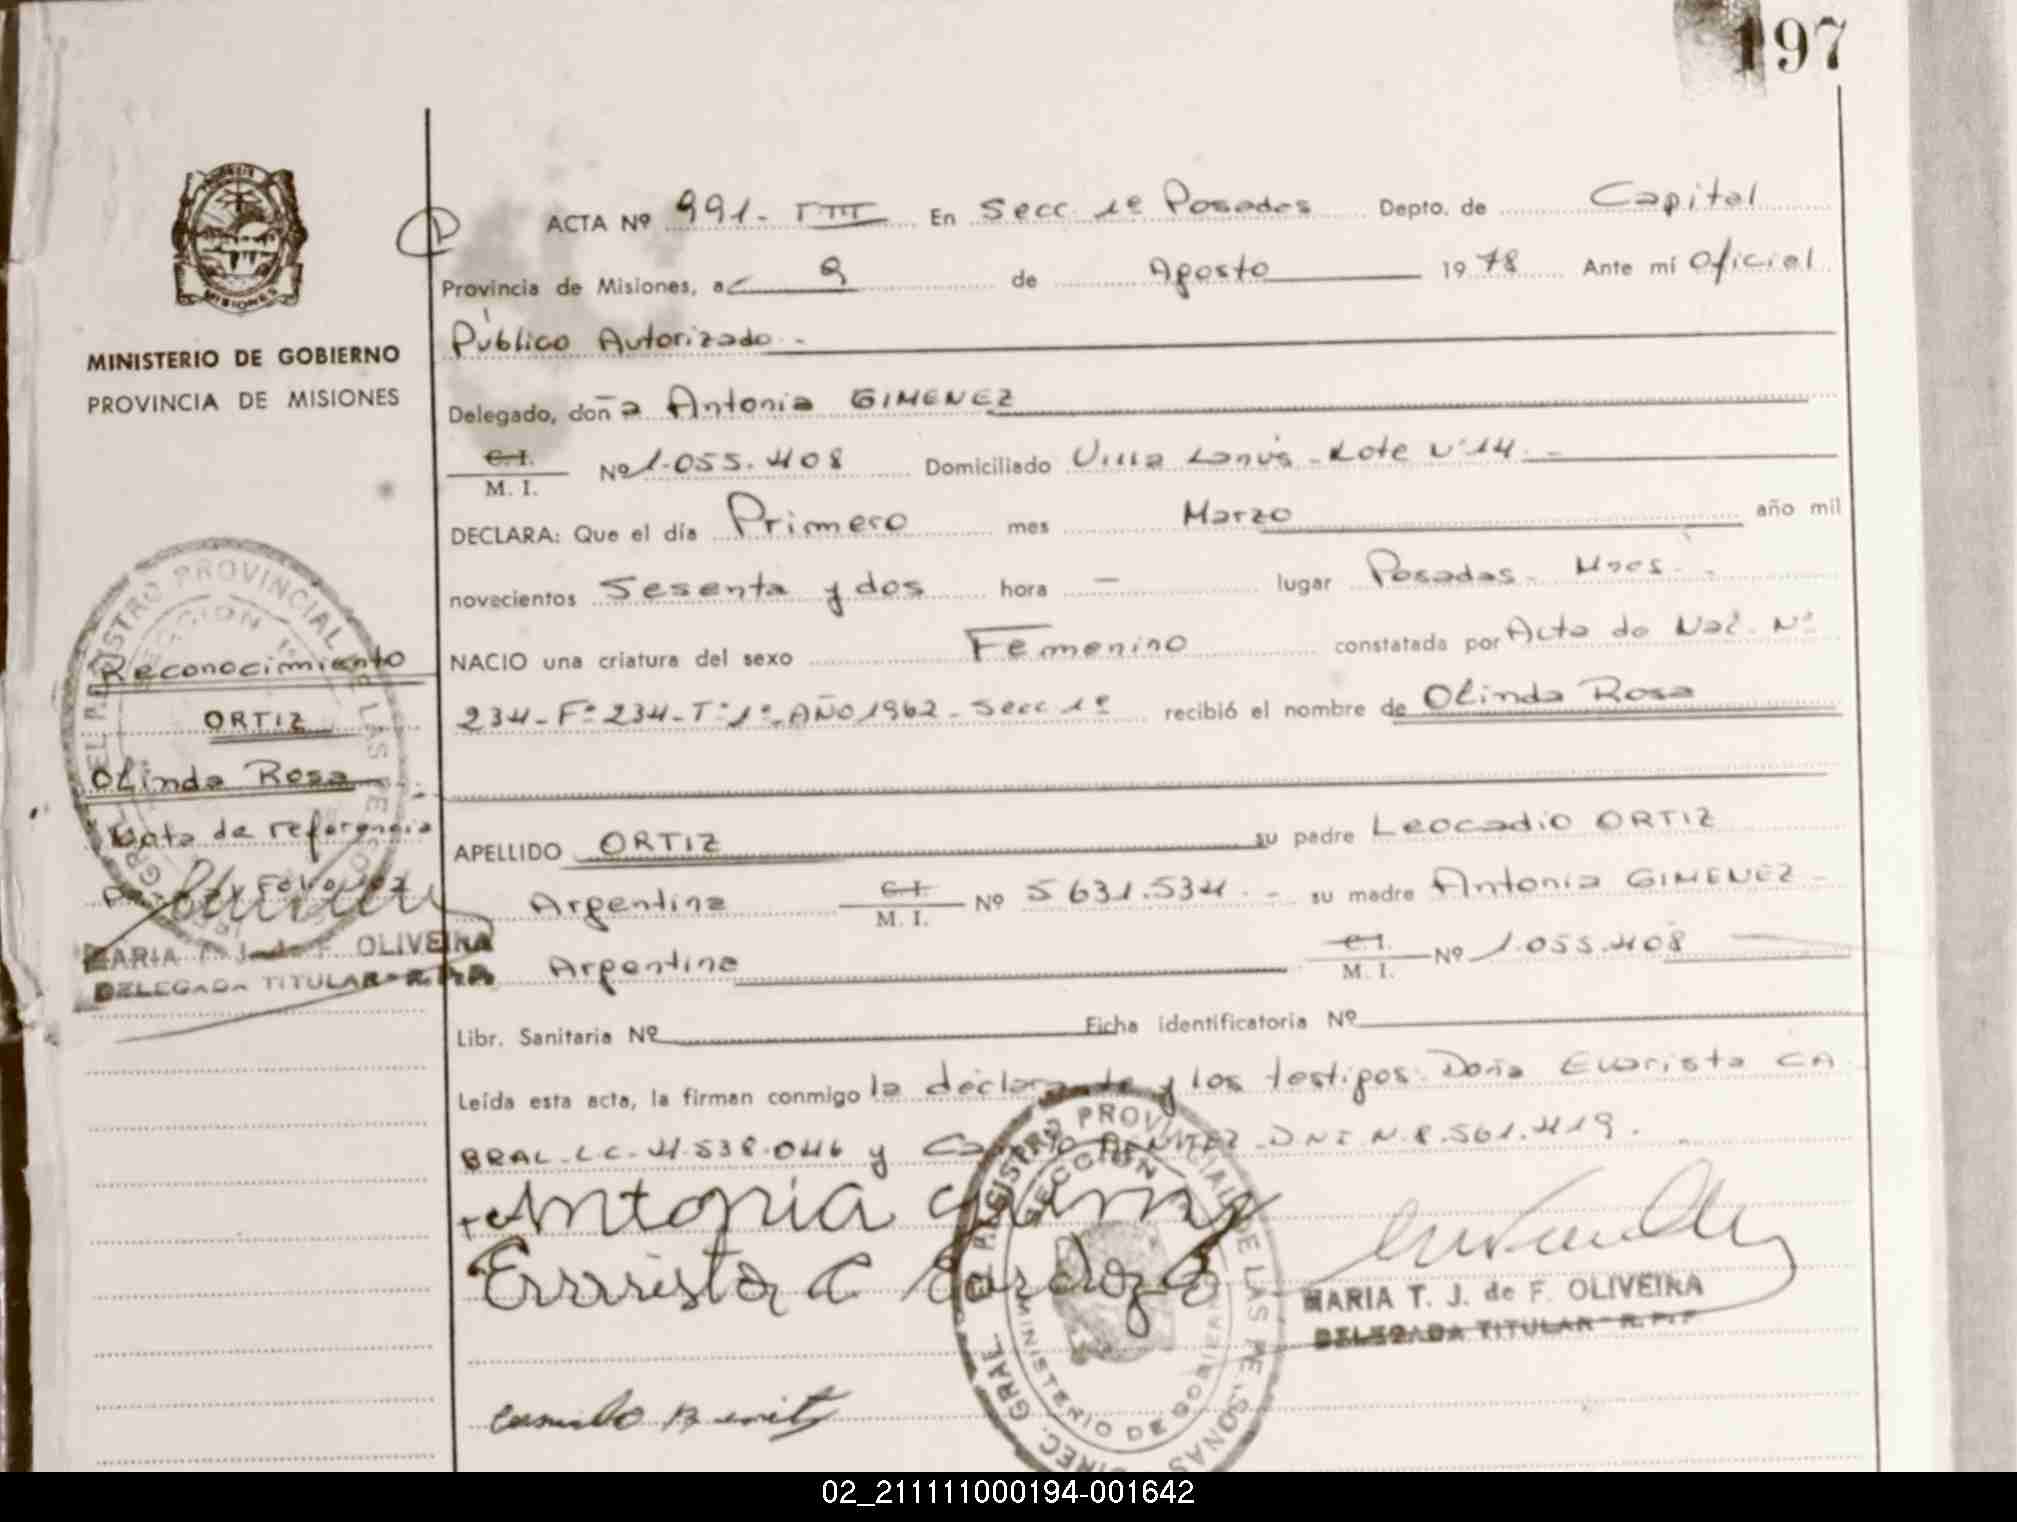 197
ACTA Nº 991- TIII En Secc 1º Posadas Depto. de Capital
Provincia de Misiones, a 9 de Agosto 1978 Ante mí Oficial
Público Autorizado.-
MINISTERIO DE GOBIERNO
PROVINCIA DE MISIONES
Delegado, doña Antonia GIMENEZ
C.I. M. I. Nº 1.055.408 Domiciliado Villa Lanús - Lote Nº14.-
DECLARA: Que el día Primero mes Marzo año mil
novecientos Sesenta y dos hora — lugar Posadas- Mnes.-
NACIO una criatura del sexo Femenino constatada por Acta de Nac. Nº
234-Fº234-Tº1º-AÑO1962-Secc 1º recibió el nombre de Olinda Rosa
Reconocimiento
ORTIZ
Olinda Rosa
Nota de referencia
APELLIDO ORTIZ su padre Leocadio ORTIZ
Argentina C.I. M. I. Nº 5631.534.- su madre Antonia GIMENEZ-
Argentina C.I. M. I. Nº 1.055.408
MARIA T. J. de F. OLIVEIRA
DELEGADA TITULAR-R.P.P
Libr. Sanitaria Nº Ficha identificatoria Nº
Leída esta acta, la firman conmigo la declarante y los testigos: Doña Evarista CA
BRAL-LC-4.538.046 y Camilo BENITEZ-DNI N.8.561.419.
Antonia Gimenez
Evarista C
MARIA T. J. de F. OLIVEIRA
DELEGADA TITULAR-R.P.P
Camilo Benitez
DIREC. GRAL. DEL REGISTRO PROVINCIAL DE LAS PERSONAS
SECCION 1º
MINISTERIO DE GOBIERNO
02_211111000194-001642